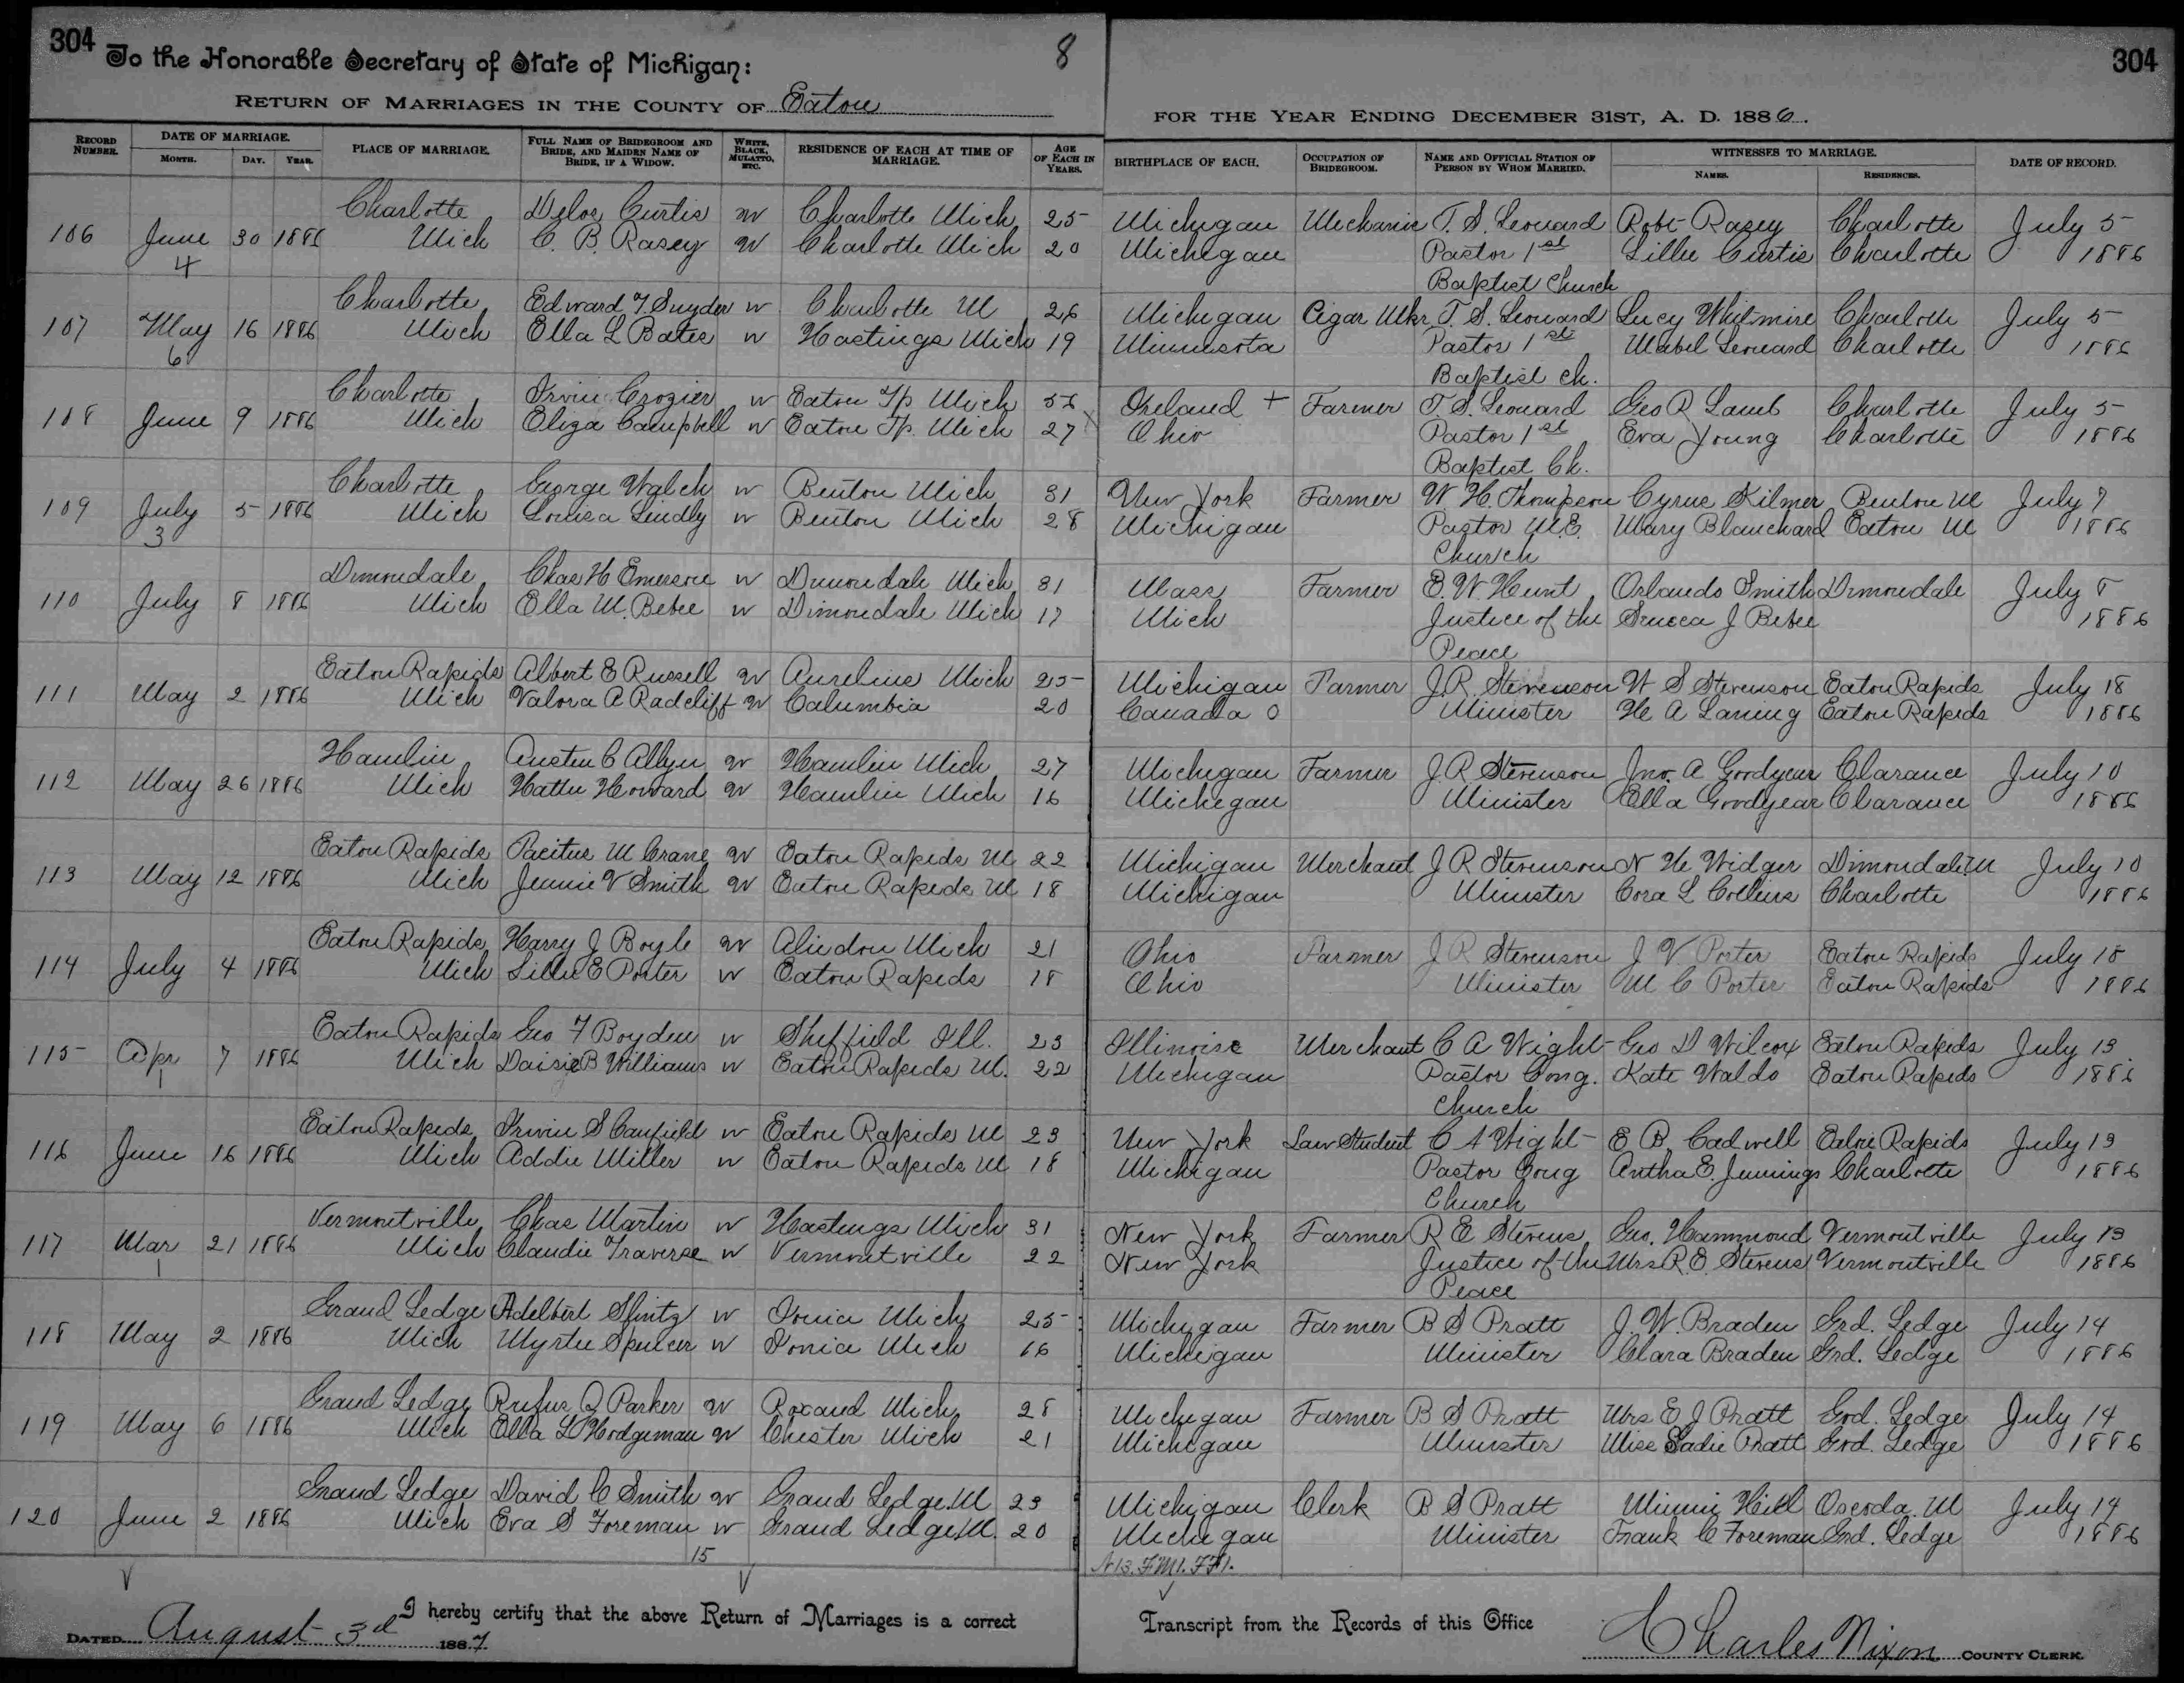 304 To the Honorable Secretary of State of Michigan: 8 304
RETURN OF MARRIAGES IN THE COUNTY OF Eaton FOR THE YEAR ENDING DECEMBER 31ST, A. D. 1886.
RECORD NUMBER. DATE OF MARRIAGE. MONTH. DAY. YEAR. PLACE OF MARRIAGE. FULL NAME OF BRIDEGROOM AND BRIDE, AND MAIDEN NAME OF BRIDE, IF A WIDOW. WHITE, BLACK, MULATTO, ETC. RESIDENCE OF EACH AT TIME OF MARRIAGE. AGE OF EACH IN YEARS. BIRTHPLACE OF EACH. OCCUPATION OF BRIDEGROOM. NAME AND OFFICIAL STATION OF PERSON BY WHOM MARRIED. WITNESSES TO MARRIAGE. NAMES. RESIDENCES. DATE OF RECORD.
Charlotte Delos Curtis w Charlotte Mich 25 Michigan Mechanic T. S. Leonard Robt Rasey Charlotte July 5
106 June 30 1886 Mich C. B. Rasey w Charlotte Mich 20 Michigan Pastor 1st Lillie Curtis Charlotte 1886
4 Baptist Church
Charlotte Edward F. Snyder w Charlotte M 26 Michigan Cigar Mkr T. S. Leonard Lucy Whitmire Charlotte July 5
107 May 16 1886 Mich Ella L Bates w Hastings Mich 19 Minnesota Pastor 1st Mabel Leonard Charlotte 1886
6 Baptist Ch.
Charlotte Irvin Crozier w Eaton Tp Mich Ireland + Farmer T. S. Leonard Geo R Lamb Charlotte July 5
108 June 9 1886 Mich Eliza Campbell w Eaton Tp. Mich 27 Ohio Pastor 1st Eva Young Charlotte 1886
Baptist Ch.
Charlotte George Walch w Benton Mich 31 New York Farmer W. H. Thompson Cyrus Kilmer Benton M July 7
109 July 5 1886 Mich Louisa Lindly w Benton Mich 28 Michigan Pastor M.E. Mary Blanchard Eaton M 1886
3 Church
Dimondale Chas H Emerson w Dimondale Mich 31 Mass Farmer E. W. Hunt Orlando Smith Dimondale July 8
110 July 8 1886 Mich Ella M. Bebee w Dimondale Mich 17 Mich Justice of the J Bebee 1886
Peace
Eaton Rapids Albert E Russell w Aurelius Mich 25 Michigan Farmer J. R. Stevenson W S Stevenson Eaton Rapids July 18
111 May 2 1886 Mich Valora A Radcliff w Columbia 20 Canada 0 Minister H A Laning Eaton Rapids 1886
Hamlin Austin C Allyn w Hamlin Mich 27 Michigan Farmer J. R Stevenson Jno. A Goodyear Clarance July 10
112 May 26 1886 Mich Hattie Howard w Hamlin Mich 16 Michigan Minister Ella Goodyear Clarance 1886
Eaton Rapids Pacitus M Crane w Eaton Rapids M 22 Michigan Merchant J R Stevenson N H Widger Dimondale M July 10
113 May 12 1886 Mich Jennie V Smith w Eaton Rapids M 18 Michigan Minister Cora L Collins Charlotte 1886
Eaton Rapids Harry J Boyle w Aliedon Mich 21 Ohio Farmer J R Stevenson J V Porter Eaton Rapids July 18
114 July 4 1886 Mich Lillie E Porter w Eaton Rapids 18 Ohio Minister M C Porter Eaton Rapids 1886
Eaton Rapids Geo F Boyden w Sheffield Ill. 23 Illinoise Merchant C A Wight Geo D Wilcox Eaton Rapids July 13
115 Apr 7 1886 Mich Daisie B Williams w Eaton Rapids M. 22 Michigan Pastor Cong. Kate Waldo Eaton Rapids 1886
1 Church
Eaton Rapids Irvin S Canfield w Eaton Rapids M 23 New York Law Student C A Wight E B. Cadwell Eaton Rapids July 13
116 June 16 1886 Mich Addie Miller w Eaton Rapids M 18 Michigan Pastor Cong Antha E. Jennings Charlotte 1886
Church
Vermontville Chas Martin w Hastings Mich 31 New York Farmer R E Stevens Geo. Hammond Vermontville July 13
117 Mar 21 1886 Mich Claudie Traverse w Vermontville 22 New York Justice of the Mrs R. E. Stevens Vermontville 1886
1 Peace
Grand Ledge Adelbert Shintz w Ionia Mich 25 Michigan Farmer B S Pratt J. W. Braden Grd. Ledge July 14
118 May 2 1886 Mich Myrtie Spencer w Ionia Mich 16 Michigan Minister Clara Braden Grd. Ledge 1886
Grand Ledge Rufus Q Parker w Roxand Mich 28 Michigan Farmer B S Pratt Mrs E J Pratt Grd. Ledge July 14
119 May 6 1886 Mich Ella L Hodgeman w Chester Mich 21 Michigan Minister Miss Sadie Pratt Grd. Ledge 1886
Grand Ledge David C Smith w Grand Ledge M 23 Michigan Clerk B S Pratt Minnie Hill Oscoda M July 14
120 June 2 1886 Mich Eva S Foreman w Grand Ledge M. 20 Michigan Minister Frank C Foreman Grd. Ledge 1886
15 N13. FM1. FF1.
I hereby certify that the above Return of Marriages is a correct Transcript from the Records of this Office
DATED August 3d 1887 Charles Nixon COUNTY CLERK.